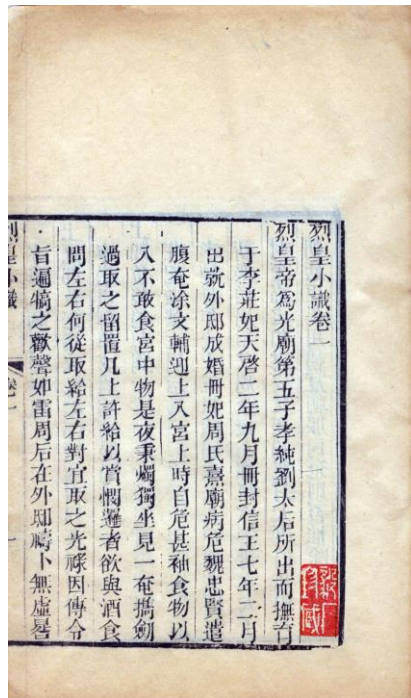 烈皇小識卷一
烈皇帝爲光廟第五子孝純劉太后所出而撫育
于李莊妃天啓二年九月冊封信王七年二月
出就外邸成婚冊妃周氏熹廟病危魏忠賢遣
腹奄涂文輔迎上入宮上時自危甚袖食物以
入不敢食宮中物是夜秉燭獨坐見一奄擕劍
過取之留置几上許給以賞憫邏者欲與酒食
問左右何從取給左右對宜取之光祿因傳令
旨遍犒之歡聲如雷周后在外邸禱卜無虛晷
烈皇小識
卷一
一